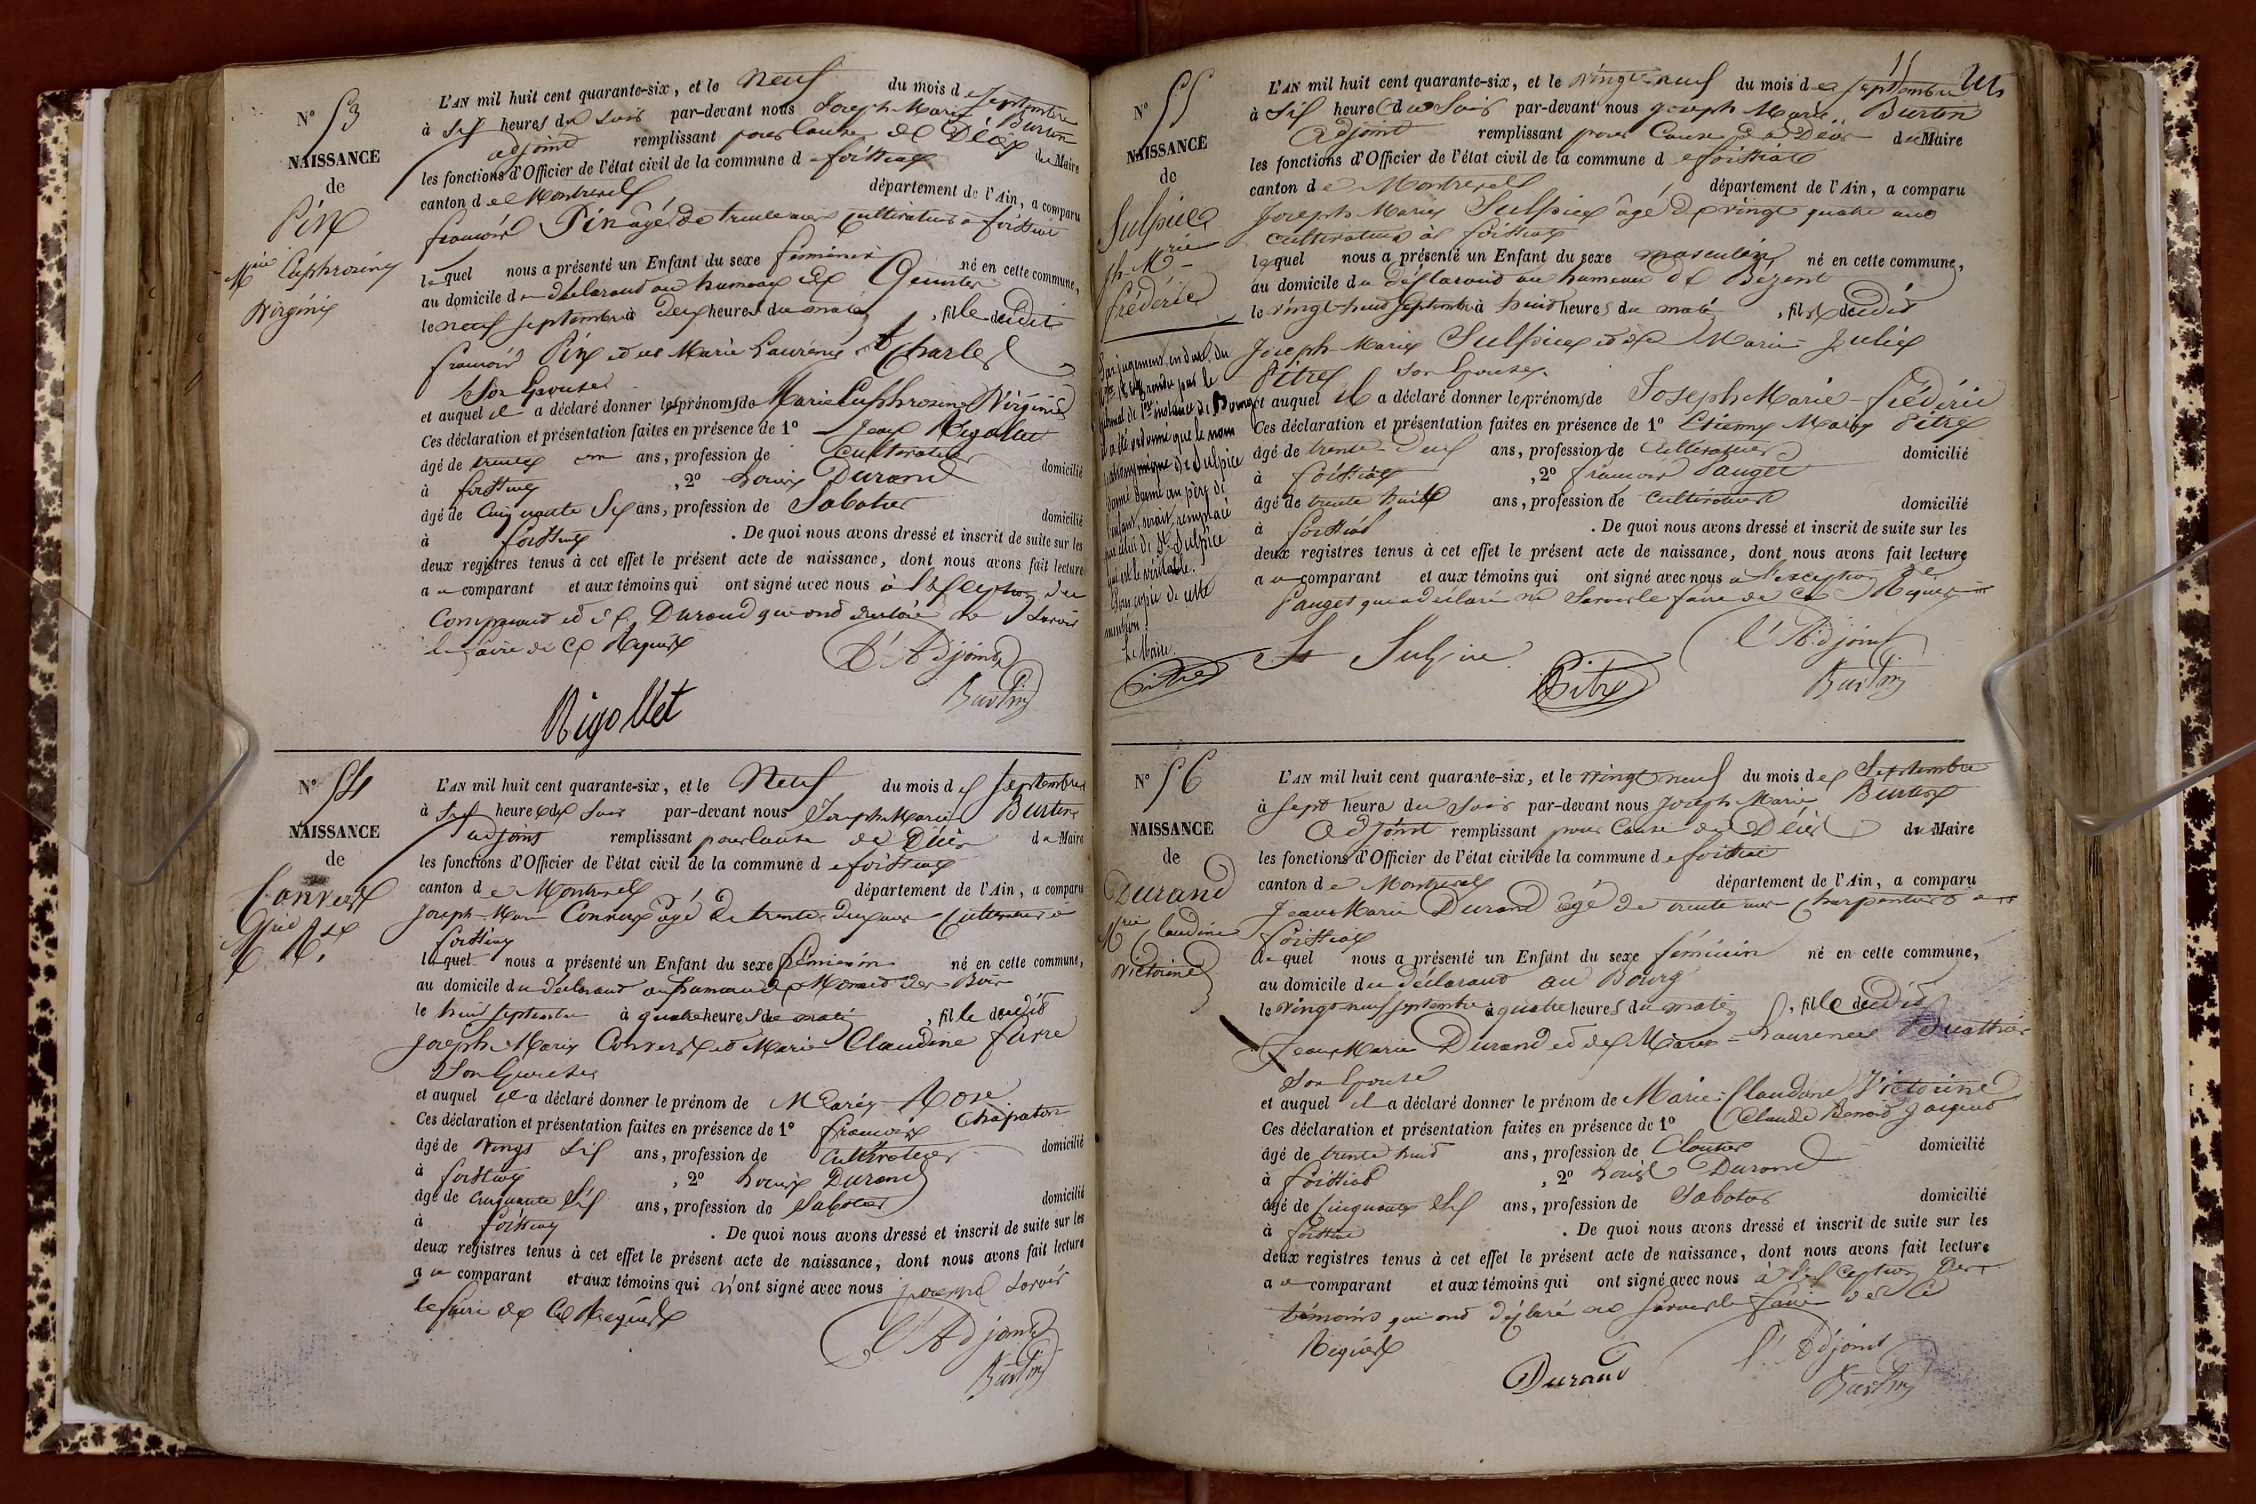 N° 53
NAISSANCE
de
Pin
Mie Euphrosine
Virginie
L'AN mil huit cent quarante-six, et le neuf du mois de septembre
à six heures du soir par-devant nous Joseph Marie Burtin
adjoint remplissant pour cause de Décès du Maire
les fonctions d'Officier de l'état civil de la commune de foissiat
canton de Montrevel département de l'Ain, a comparu
françois Pin âgé de trente ans cultivateur à foissiat
lequel nous a présenté un Enfant du sexe féminin né en cette commune,
au domicile du déclarant au hameau de
le neuf septembre à deux heures du matin, fille dudit
françois Pin et de Marie Laurence Charles
Son Epouse
et auquel il a déclaré donner les prénoms de Marie Euphrosine Virginie
Ces déclaration et présentation faites en présence de 1° Jean Rigollet
âgé de trente un ans, profession de cultivateur domicilié
à foissiat, 2° Louis Durand
âgé de Cinquante Six ans, profession de Sabotier domicilié
à foissiat. De quoi nous avons dressé et inscrit de suite sur les
deux registres tenus à cet effet le présent acte de naissance, dont nous avons fait lecture
au comparant et aux témoins qui ont signé avec nous à l'exception du
Comparant et de Durand qui ont déclaré ne savoir
le faire de ce Requis
L'Adjoint
Burtin
Rigollet
N° 54
NAISSANCE
de
Convert
Mie Rse
L'AN mil huit cent quarante-six, et le Neuf du mois de Septembre
à six heures du soir par-devant nous Joseph Marie Burtin
adjoint remplissant pour cause de Décès du Maire
les fonctions d'Officier de l'état civil de la commune de foissiat
canton de Montrevel département de l'Ain, a comparu
Joseph Marie Convert âgé de trente deux ans Cultivateur à
foissiat
lequel nous a présenté un Enfant du sexe féminin né en cette commune,
au domicile du déclarant au hameau de
le huit septembre à quatre heures du matin, fille dudit
Joseph Marie Convert et de Marie Claudine farre
Son Epouse
et auquel il a déclaré donner le prénom de Marie Rose
Ces déclaration et présentation faites en présence de 1° françois Chapaton
âgé de vingt six ans, profession de Cultivateur domicilié
à foissiat, 2° Louis Durand
âgé de Cinquante Six ans, profession de Sabotier domicilié
à foissiat. De quoi nous avons dressé et inscrit de suite sur les
deux registres tenus à cet effet le présent acte de naissance, dont nous avons fait lecture
au comparant et aux témoins qui n'ont signé avec nous pour ne savoir
le faire de ce Requis
L'Adjoint
Burtin
55
N° 55
NAISSANCE
de
Sulpice
ph Mrie
frédéric
Par jugement en date du
rendu par le
tribunal de 1ère instance de Bourg
il a été ordonné que le nom
patronymique de Sulpice
donné au père de
l'enfant, serait remplacé
par celui de St Sulpice
qui est le véritable.
Pour copie de cette
mention
Le Maire.
L'AN mil huit cent quarante-six, et le vingt-neuf du mois de septembre
à six heures du soir par-devant nous Joseph Marie Burtin
adjoint remplissant pour Cause de Décès du Maire
les fonctions d'Officier de l'état civil de la commune de foissiat
canton de Montrevel département de l'Ain, a comparu
Joseph Marie Sulpice âgé de vingt quatre ans
cultivateur à foissiat
lequel nous a présenté un Enfant du sexe masculin né en cette commune,
au domicile du déclarant au hameau de Bezent
le vingt-huit septembre à huit heures du matin, fils dudit
Joseph Marie Sulpice et de Marie Julie
Pitre son Epouse
et auquel il a déclaré donner les prénoms de Joseph Marie frédéric
Ces déclaration et présentation faites en présence de 1° Etienne Marie Pitre
âgé de trente deux ans, profession de Cultivateur domicilié
à foissiat, 2° françois Pauget
âgé de trente huit ans, profession de cultivateur domicilié
à foissiat. De quoi nous avons dressé et inscrit de suite sur les
deux registres tenus à cet effet le présent acte de naissance, dont nous avons fait lecture
au comparant et aux témoins qui ont signé avec nous à l'exception de
Pauget qui a déclaré ne savoir le faire de ce Requis
St Sulpice
Pitre
L'Adjoint
Burtin
N° 56
NAISSANCE
de
Durand
Mrie Claudine
Victorine
L'AN mil huit cent quarante-six, et le vingt neuf du mois de Septembre
à sept heure du soir par-devant nous Joseph Marie Burtin
adjoint remplissant pour Cause de Décès du Maire
les fonctions d'Officier de l'état civil de la commune de foissiat
canton de Montrevel département de l'Ain, a comparu
Jean Marie Durand âgé de trente ans Charpentier à
foissiat
lequel nous a présenté un Enfant du sexe féminin né en cette commune,
au domicile du déclarant au Bourg
le vingt-neuf septembre à quatre heures du matin, fille dudit
Jean Marie Durand et de Marie Laurence Buathier
Son Epouse
et auquel il a déclaré donner le prénom de Marie Claudine Victorine
Ces déclaration et présentation faites en présence de 1° Claude Benoit
âgé de trente huit ans, profession de Cloutier domicilié
à foissiat, 2° Louis Durand
âgé de Cinquante Six ans, profession de Sabotier domicilié
à foissiat. De quoi nous avons dressé et inscrit de suite sur les
deux registres tenus à cet effet le présent acte de naissance, dont nous avons fait lecture
au comparant et aux témoins qui ont signé avec nous à l'exception des
témoins qui ont déclaré ne savoir le faire de ce
Requis
Durand
L'Adjoint
Burtin